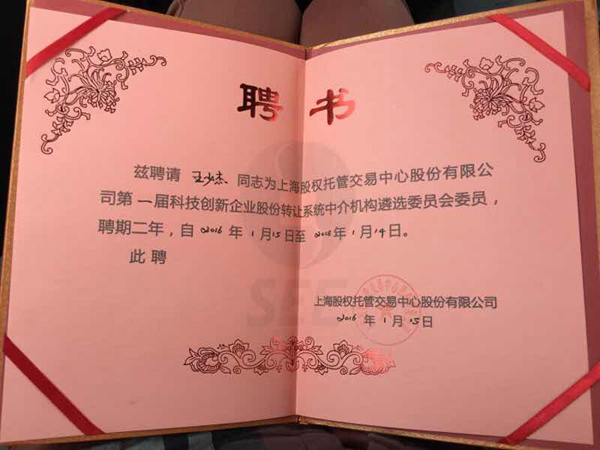 聘书
兹聘请 王少杰 同志为上海股权托管交易中心股份有限公
司第一届科技创新企业股份转让系统中介机构遴选委员会委员，
聘期二年，自2016年1月15日至2018年1月14日。
此聘
SEE
上海股权托管交易中心股份有限公司
2016年1月15日